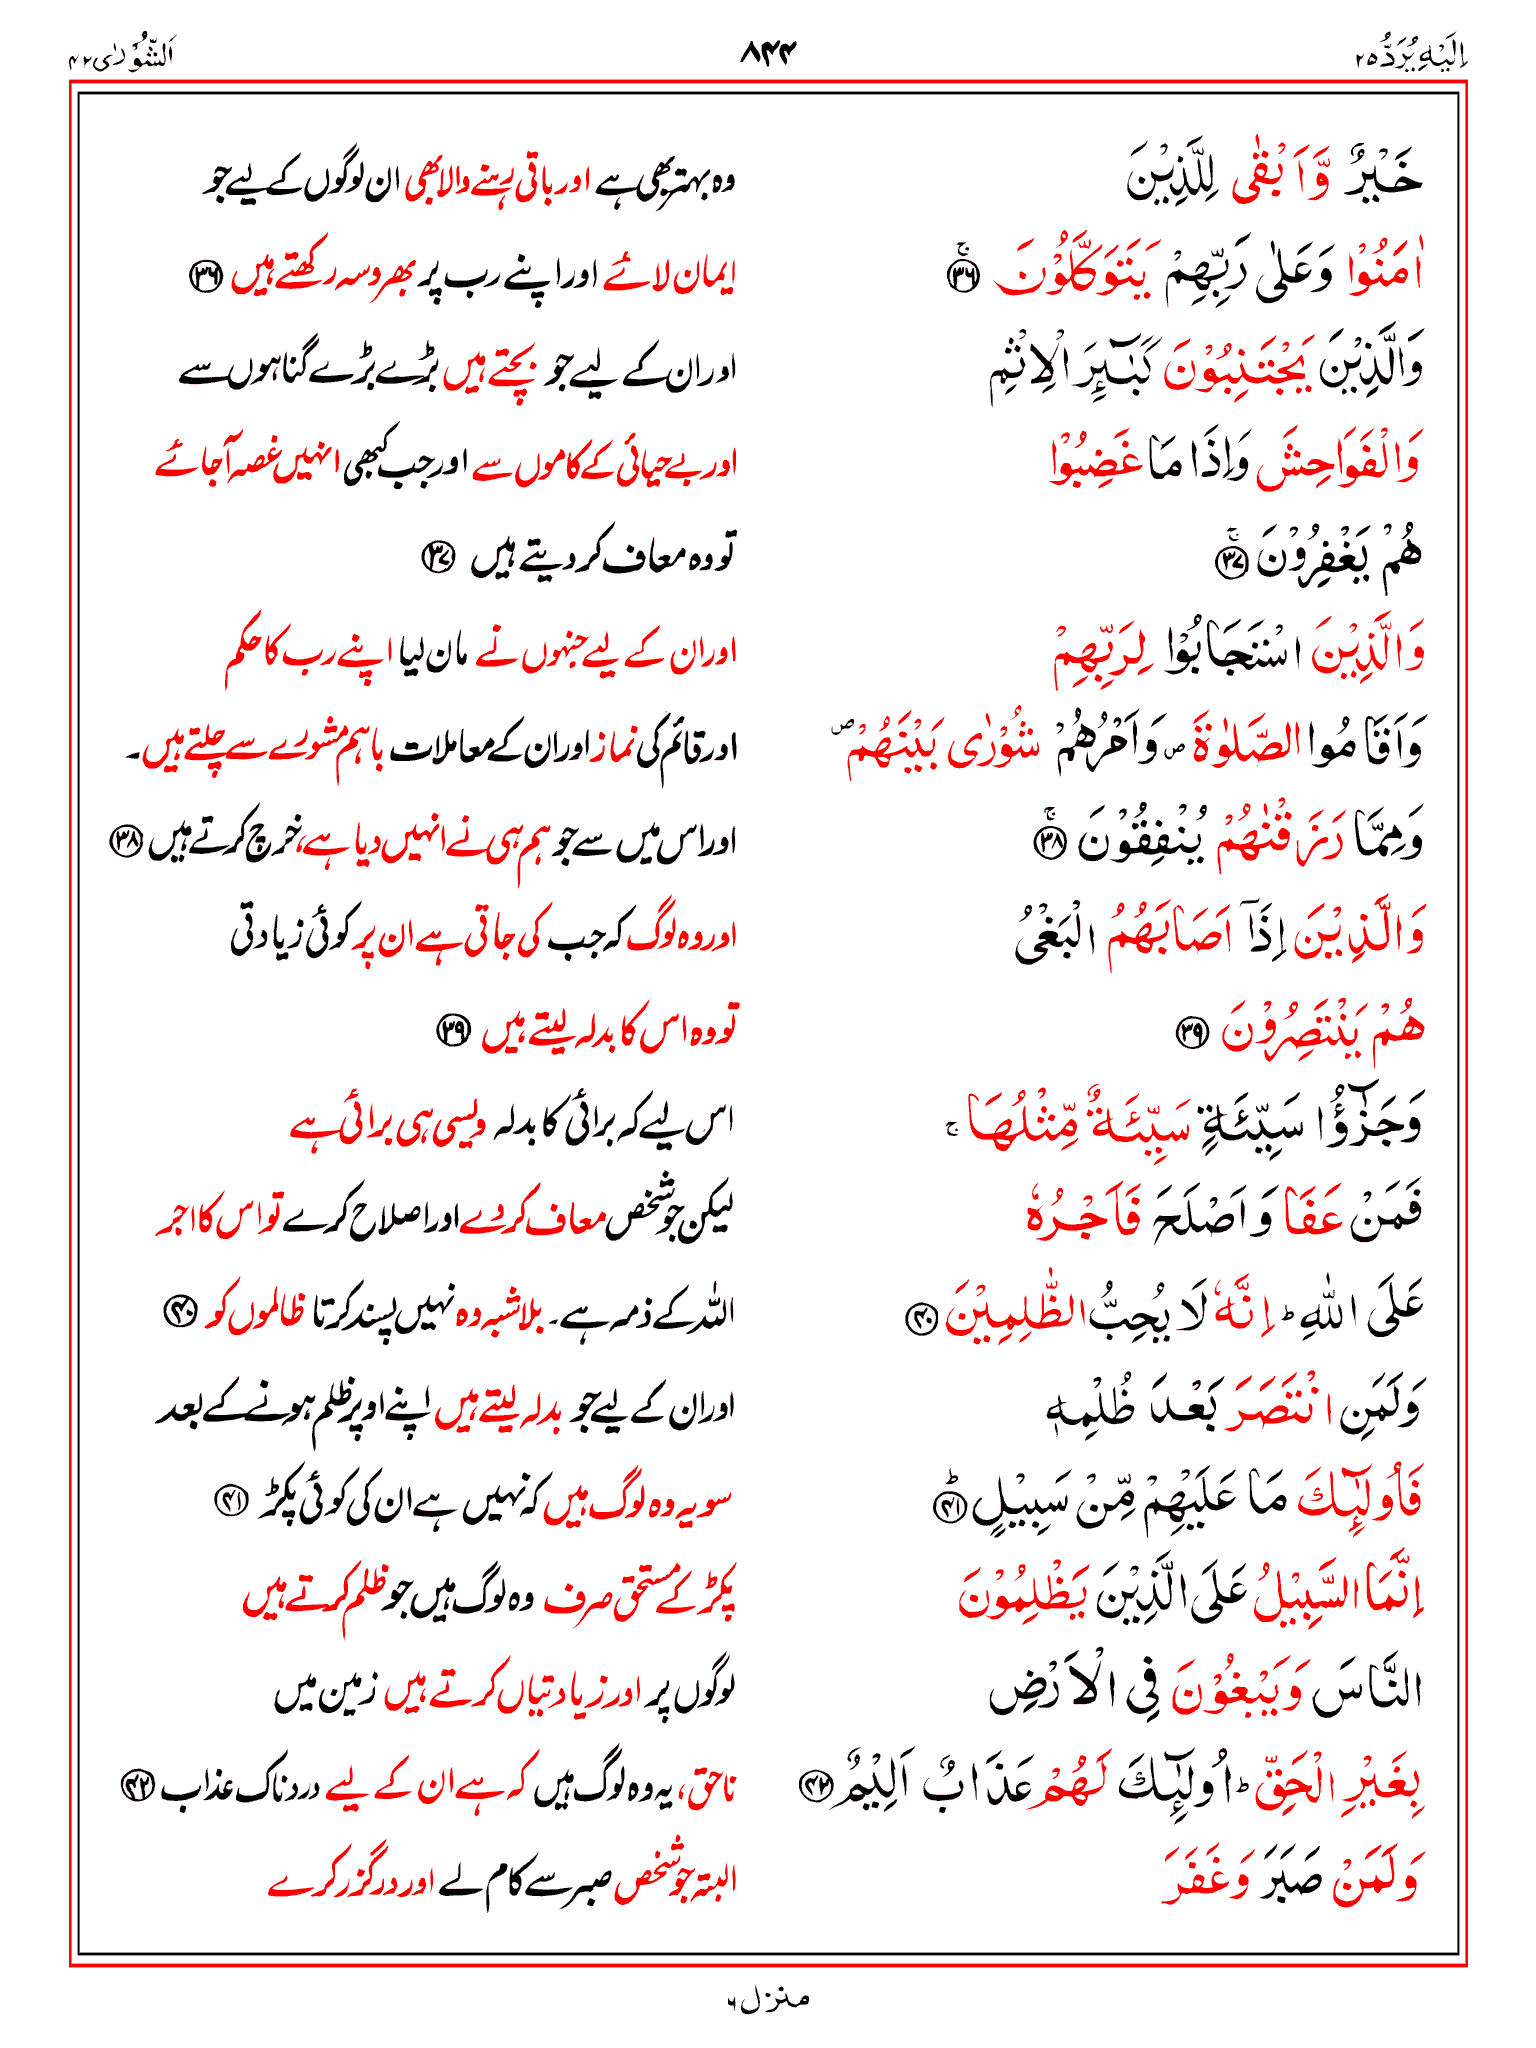 اِلَيْهِ يُرَدُّ ٢٥ ٨٤٤ اَلشُّوْرٰى ٤٢
خَيْرٌ وَّاَبْقٰى لِلَّذِيْنَ وہ بہتر بھی ہے اور باقی رہنے والا بھی ان لوگوں کے لیے جو
اٰمَنُوْا وَعَلٰى رَبِّهِمْ يَتَوَكَّلُوْنَ ۚ﴿٣٦﴾ ایمان لائے اور اپنے رب پر بھروسہ رکھتے ہیں ﴿٣٦﴾
وَالَّذِيْنَ يَجْتَنِبُوْنَ كَبٰٓئِرَ الْاِثْمِ اور ان کے لیے جو بچتے ہیں بڑے بڑے گناہوں سے
وَالْفَوَاحِشَ وَاِذَا مَا غَضِبُوْا اور بے حیائی کے کاموں سے اور جب کبھی انہیں غصہ آجائے
هُمْ يَغْفِرُوْنَ ۚ﴿٣٧﴾ تو وہ معاف کر دیتے ہیں ﴿٣٧﴾
وَالَّذِيْنَ اسْتَجَابُوْا لِرَبِّهِمْ اور ان کے لیے جنہوں نے مان لیا اپنے رب کا حکم
وَاَقَامُوا الصَّلٰوةَ ۖ وَاَمْرُهُمْ شُوْرٰى بَيْنَهُمْ ۖ اور قائم کی نماز اور ان کے معاملات باہم مشورے سے چلتے ہیں۔
وَمِمَّا رَزَقْنٰهُمْ يُنْفِقُوْنَ ۚ﴿٣٨﴾ اور اس میں سے جو ہم ہی نے انہیں دیا ہے، خرچ کرتے ہیں ﴿٣٨﴾
وَالَّذِيْنَ اِذَآ اَصَابَهُمُ الْبَغْيُ اور وہ لوگ کہ جب کی جاتی ہے ان پر کوئی زیادتی
هُمْ يَنْتَصِرُوْنَ ﴿٣٩﴾ تو وہ اس کا بدلہ لیتے ہیں ﴿٣٩﴾
وَجَزٰٓؤُا سَيِّئَةٍ سَيِّئَةٌ مِّثْلُهَا ۚ اس لیے کہ برائی کا بدلہ ویسی ہی برائی ہے
فَمَنْ عَفَا وَاَصْلَحَ فَاَجْرُهٗ لیکن جو شخص معاف کردے اور اصلاح کرے تو اس کا اجر
عَلَى اللّٰهِ ؕ اِنَّهٗ لَا يُحِبُّ الظّٰلِمِيْنَ ﴿٤٠﴾ اللہ کے ذمہ ہے۔ بلاشبہ وہ نہیں پسند کرتا ظالموں کو ﴿٤٠﴾
وَلَمَنِ انْتَصَرَ بَعْدَ ظُلْمِهٖ اور ان کے لیے جو بدلہ لیتے ہیں اپنے اوپر ظلم ہونے کے بعد
فَاُولٰٓئِكَ مَا عَلَيْهِمْ مِّنْ سَبِيْلٍ ؕ﴿٤١﴾ سو یہ وہ لوگ ہیں کہ نہیں ہے ان کی کوئی پکڑ ﴿٤١﴾
اِنَّمَا السَّبِيْلُ عَلَى الَّذِيْنَ يَظْلِمُوْنَ پکڑ کے مستحق صرف وہ لوگ ہیں جو ظلم کرتے ہیں
النَّاسَ وَيَبْغُوْنَ فِى الْاَرْضِ لوگوں پر اور زیادتیاں کرتے ہیں زمین میں
بِغَيْرِ الْحَقِّ ؕ اُولٰٓئِكَ لَهُمْ عَذَابٌ اَلِيْمٌ ﴿٤٢﴾ ناحق، یہ وہ لوگ ہیں کہ ہے ان کے لیے دردناک عذاب ﴿٤٢﴾
وَلَمَنْ صَبَرَ وَغَفَرَ البتہ جو شخص صبر سے کام لے اور درگزر کرے
منزل ٦